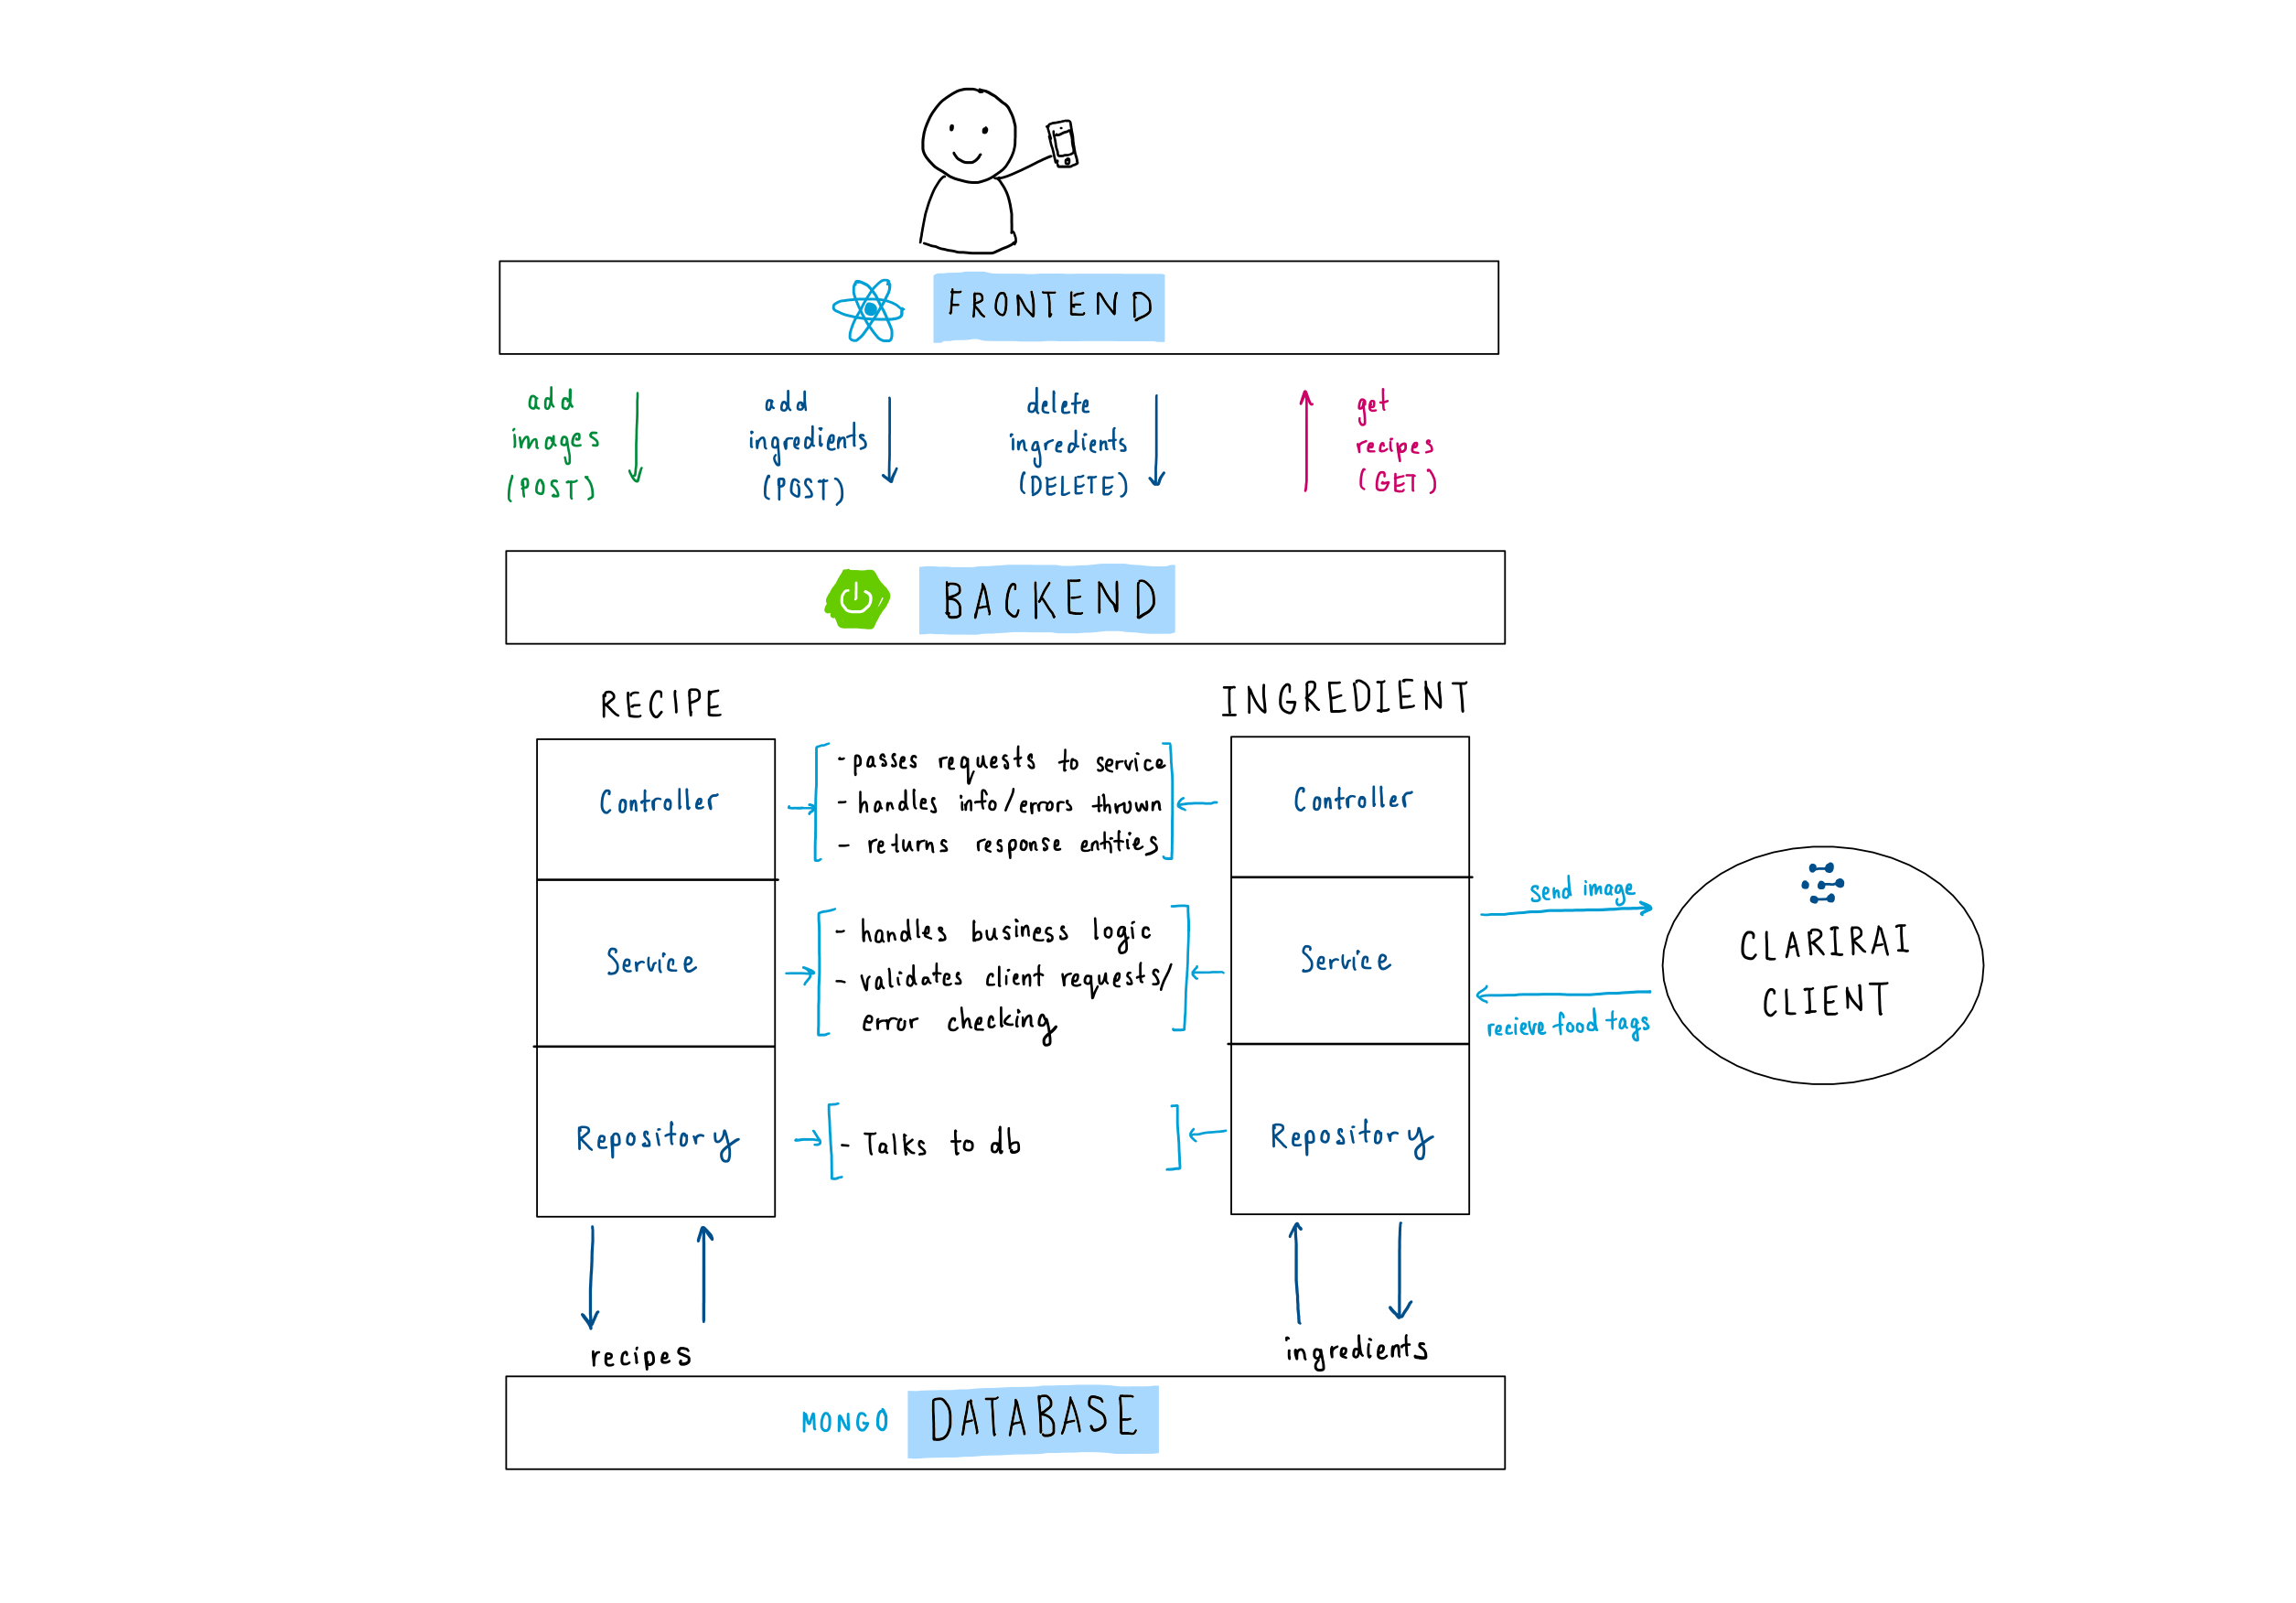 FRONTEND
add
images
(POST)
add
ingredients
(POST)
delete
ingredients
(DELETE)
get
recipes
(GET)
BACKEND
RECIPE
INGREDIENT
Controller
- passes requests to service
- handles info/errors thrown
- returns response entities
Controller
Service
- handles business logic
- validates client requests/
error checking
Service
send image
recieve food tags
CLARIRAI
CLIENT
Repository
- Talks to db
Repository
recipes
ingredients
MONGO DATABASE